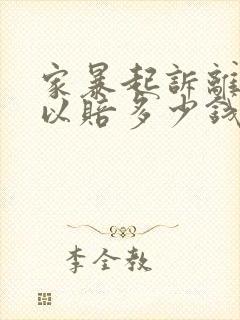 家暴起訴離
以賠多少錢
李全教